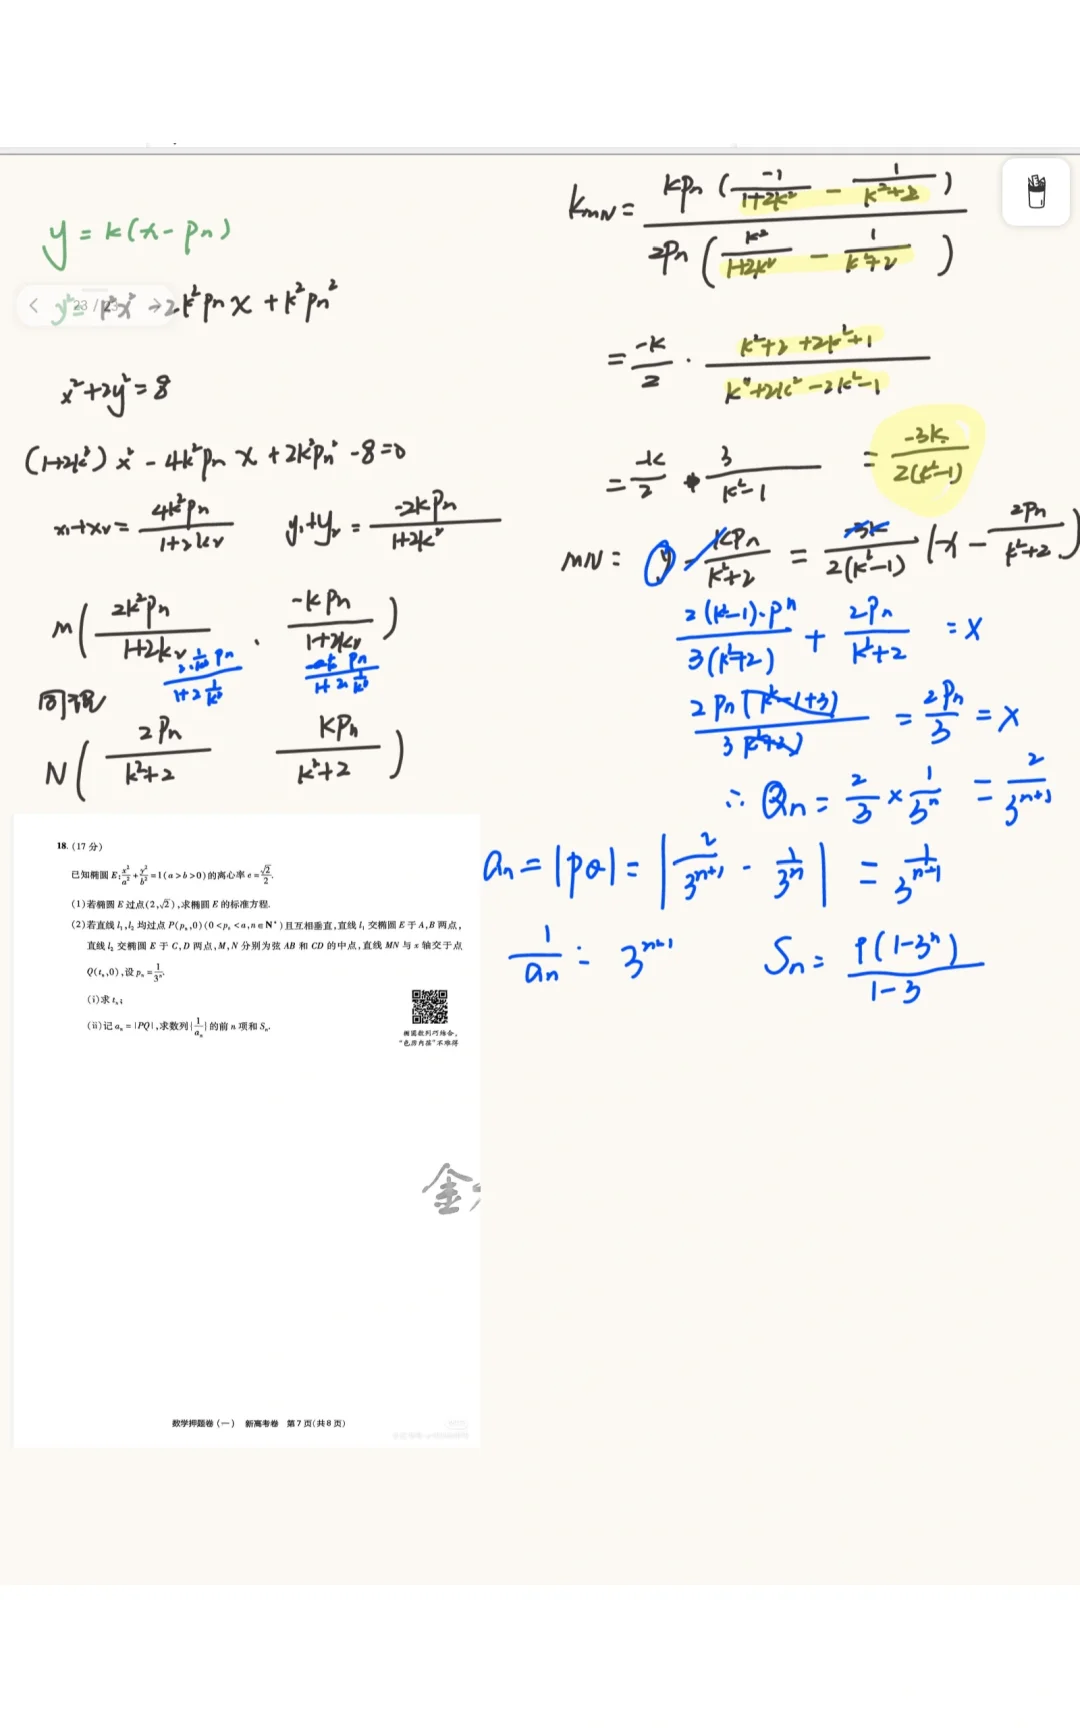 y = k(x - pn)
y² = k²x² - 2k²pn x + k²pn²
23 /
x² + 2y² = 8
(1+2k²) x² - 4k²pn x + 2k²pn² - 8 = 0
x₁+x₂ = 4k²pn / (1+2k²)  y₁+y₂ = -2kpn / (1+2k²)
M ( 2k²pn / (1+2k²) , -kpn / (1+2k²) )
同理
N ( 2pn / (k²+2)  kpn / (k²+2) )
kMN = kpn ( -1/(1+2k²) - 1/(k²+2) ) / 2pn ( k²/(1+2k²) - 1/(k²+2) )
= -k/2 · (k²+2+2k²+1) / (k⁴+2k²-2k²-1)
= -k/2 · 3/(k²-1) = -3k / 2(k²-1)
MN: y - kpn/(k²+2) = -3k / 2(k²-1) (x - 2pn/(k²+2))
2(k²-1)·pn / 3(k²+2) + 2pn/(k²+2) = x
2pn(k²-1+3) / 3(k²+2) = 2pn/3 = x
∴ Qn = 2/3 × 1/3ⁿ = 2/3ⁿ⁺¹
an = |PQ| = | 2/3ⁿ⁺¹ - 1/3ⁿ | = 1/3ⁿ⁺¹
1/an = 3ⁿ⁺¹  Sn = 9(1-3ⁿ) / 1-3
18. (17 分)
已知椭圆 E: x²/a² + y²/b² = 1(a>b>0)的离心率 e = √2/2.
(1)若椭圆 E 过点(2,√2),求椭圆 E 的标准方程.
(2)若直线 l₁,l₂ 均过点 P(pₙ,0)(0<pₙ<a,n∈N*)且互相垂直,直线 l₁ 交椭圆 E 于 A,B 两点,
直线 l₂ 交椭圆 E 于 C,D 两点,M,N 分别为弦 AB 和 CD 的中点,直线 MN 与 x 轴交于点
Q(tₙ,0),设 pₙ = 1/3ⁿ.
(ⅰ)求 tₙ;
(ⅱ)记 aₙ = |PQ|,求数列{1/aₙ}的前 n 项和 Sₙ.
椭圆数列巧结合,
"色厉内荏"不难得
金
数学押题卷(一) 新高考卷 第 7 页(共 8 页)